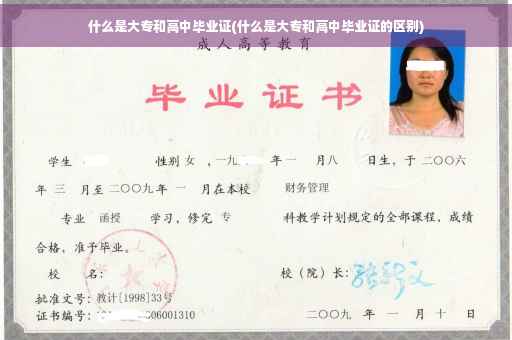 什么是大专和高中毕业证(什么是大专和高中毕业证的区别)
成人高等教育
毕业证书
学生 性别 女 ，一九 年 一 月八 日生，于 二〇〇六
年 三 月至 二〇〇九 年 一 月在本校 财务管理
专业 函授 学习，修完 专 科教学计划规定的全部课程，成绩
合格，准予毕业。
校 名： 校（院）长：
批准文号：教计[1998]33号
证书编号： 06001310 二〇〇九 年 一 月 十 日